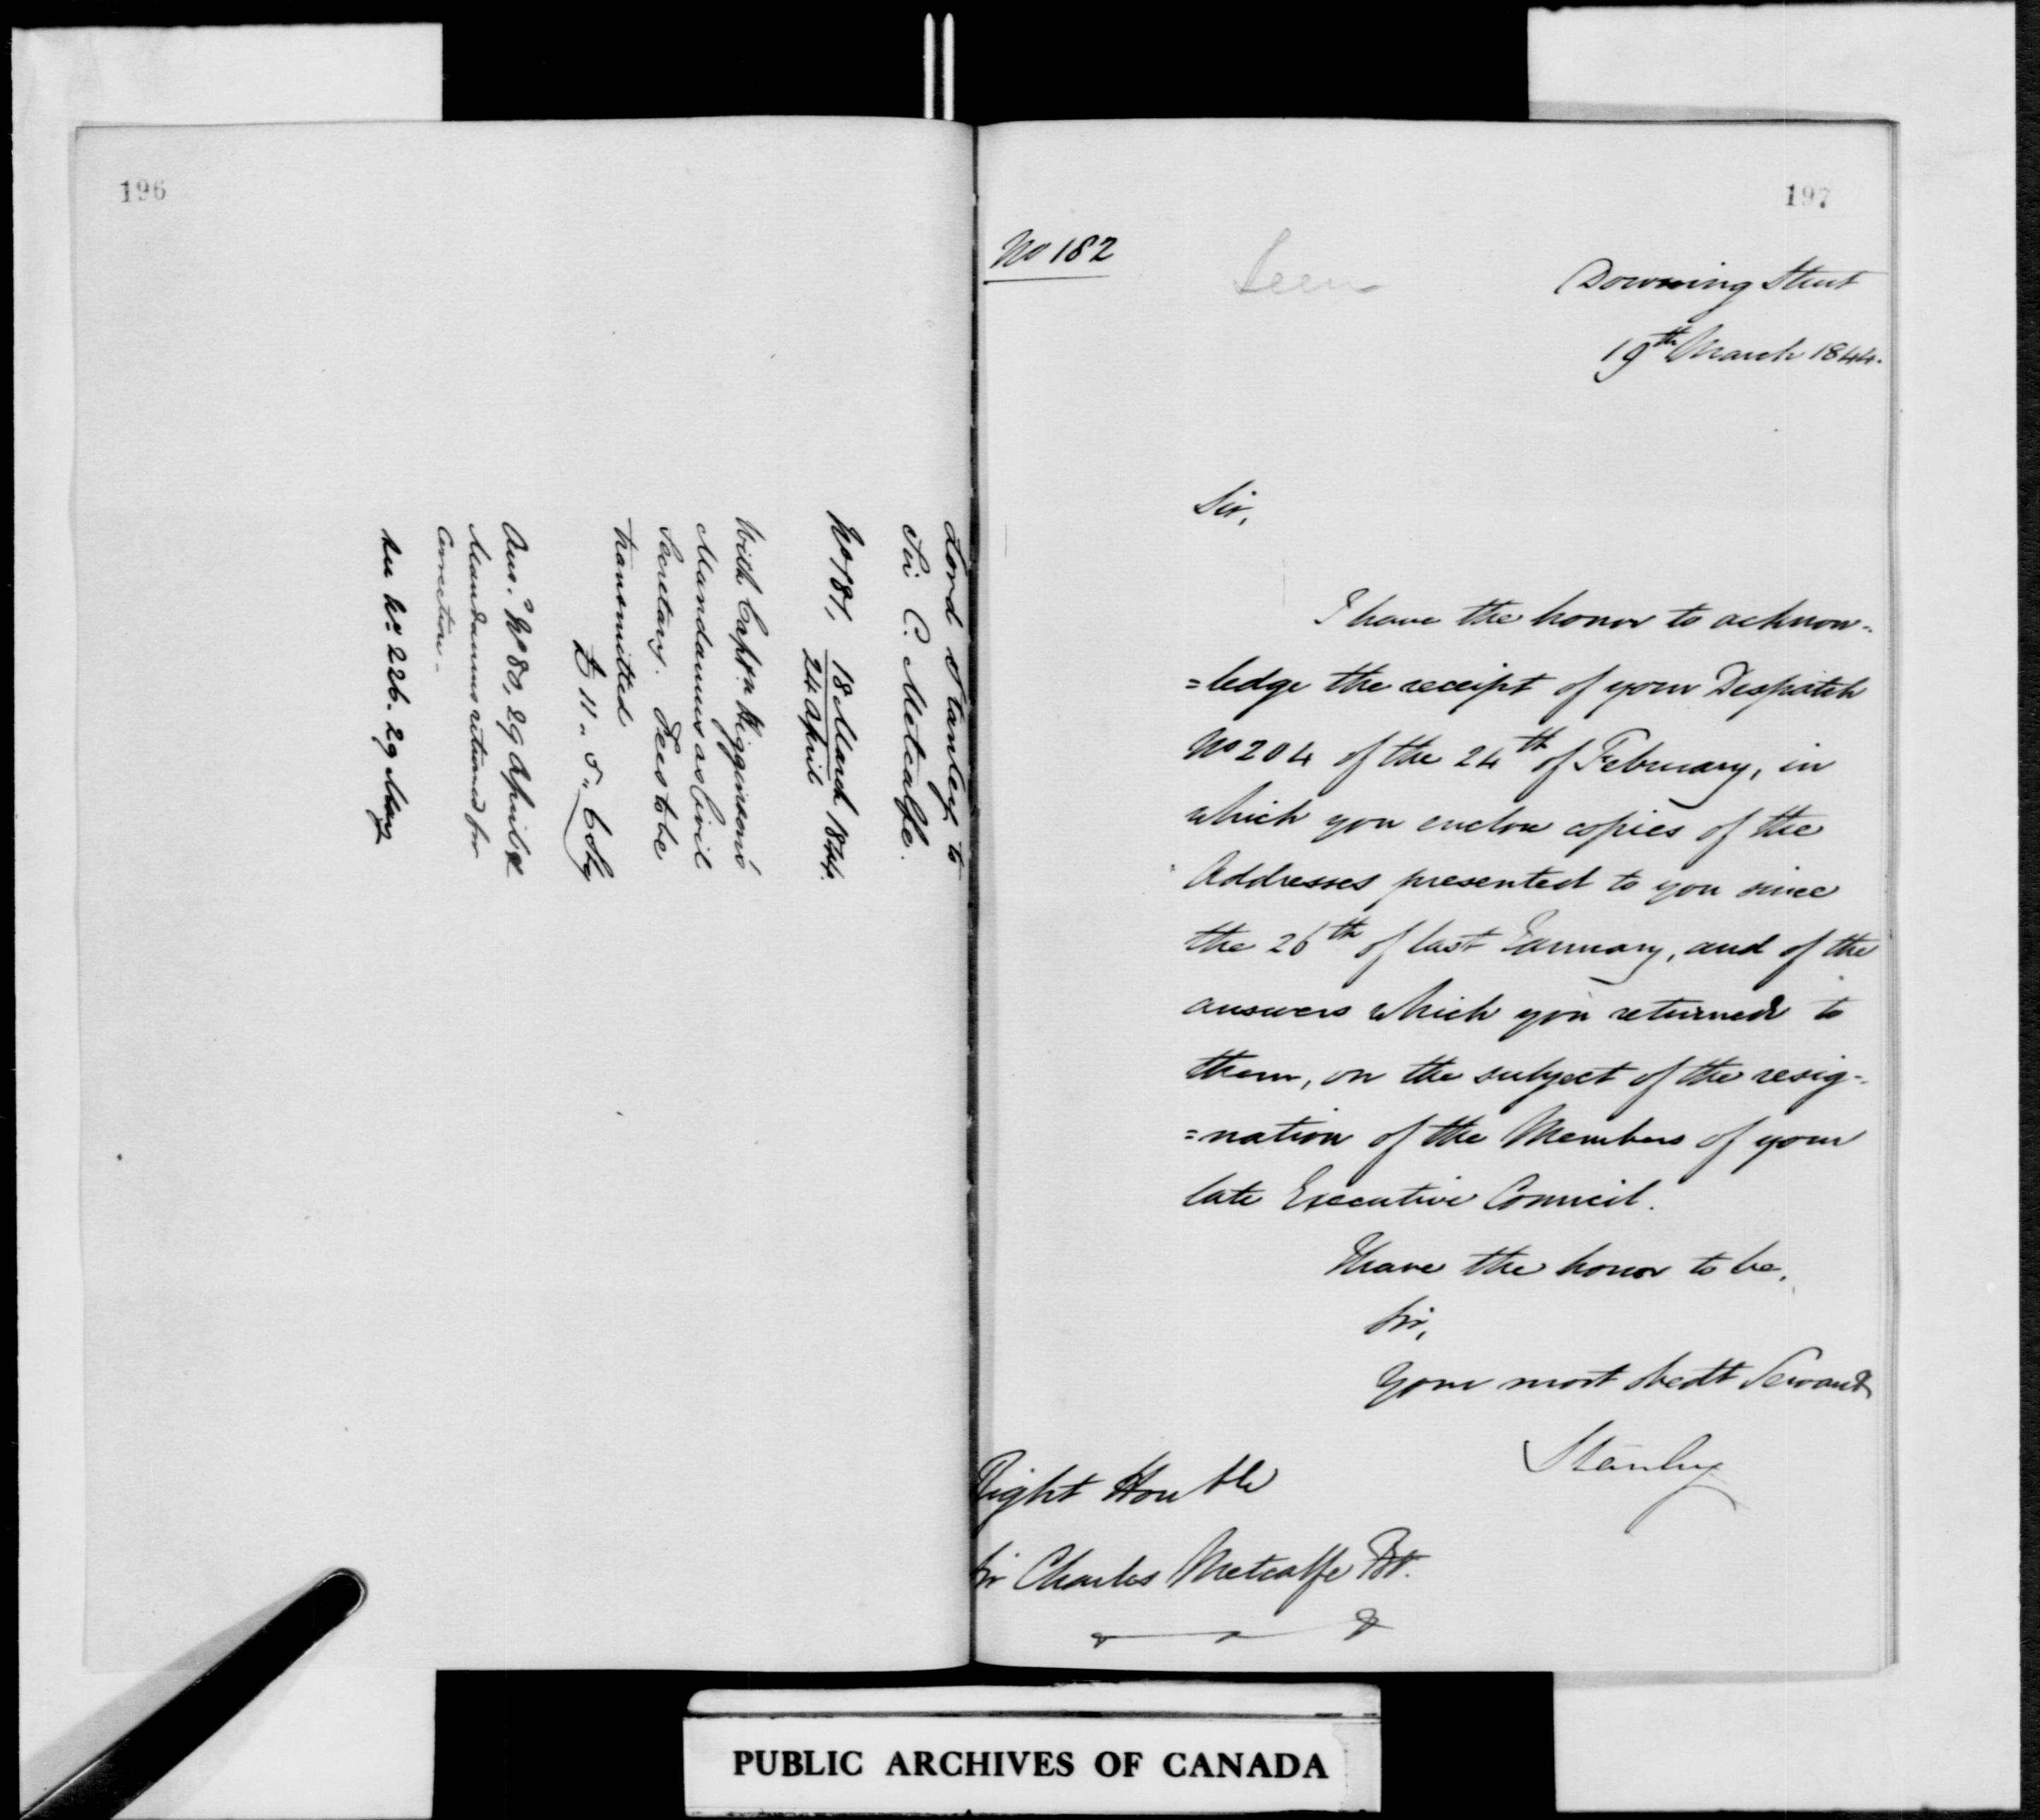 196
Lord Stanley to
Sir C. Metcalfe.
No 181, 18 March 1844.
24 April
With Captn. Higginson's
Mandamus as Civil
Secretary. Fees to be
transmitted
£ 11 " 5 "
Ans. No 80, 29 April &
Mandamus returned for
Correction -
See No. 226. 29 May
197
No 182
Seen
Downing Street
19th March 1844.
Sir,
I have the honor to acknow-
=ledge the receipt of your Despatch
No 204 of the 24th of February, in
which you enclose copies of the
Addresses presented to you since
the 26th of last January, and of the
answers which you returned to
them, on the subject of the resig-
=nation of the Members of your
late Executive Council.
I have the honor to be,
Sir,
Your most obedt Servant
Stanley
Right Honble
Sir Charles Metcalfe Bt.
PUBLIC ARCHIVES OF CANADA